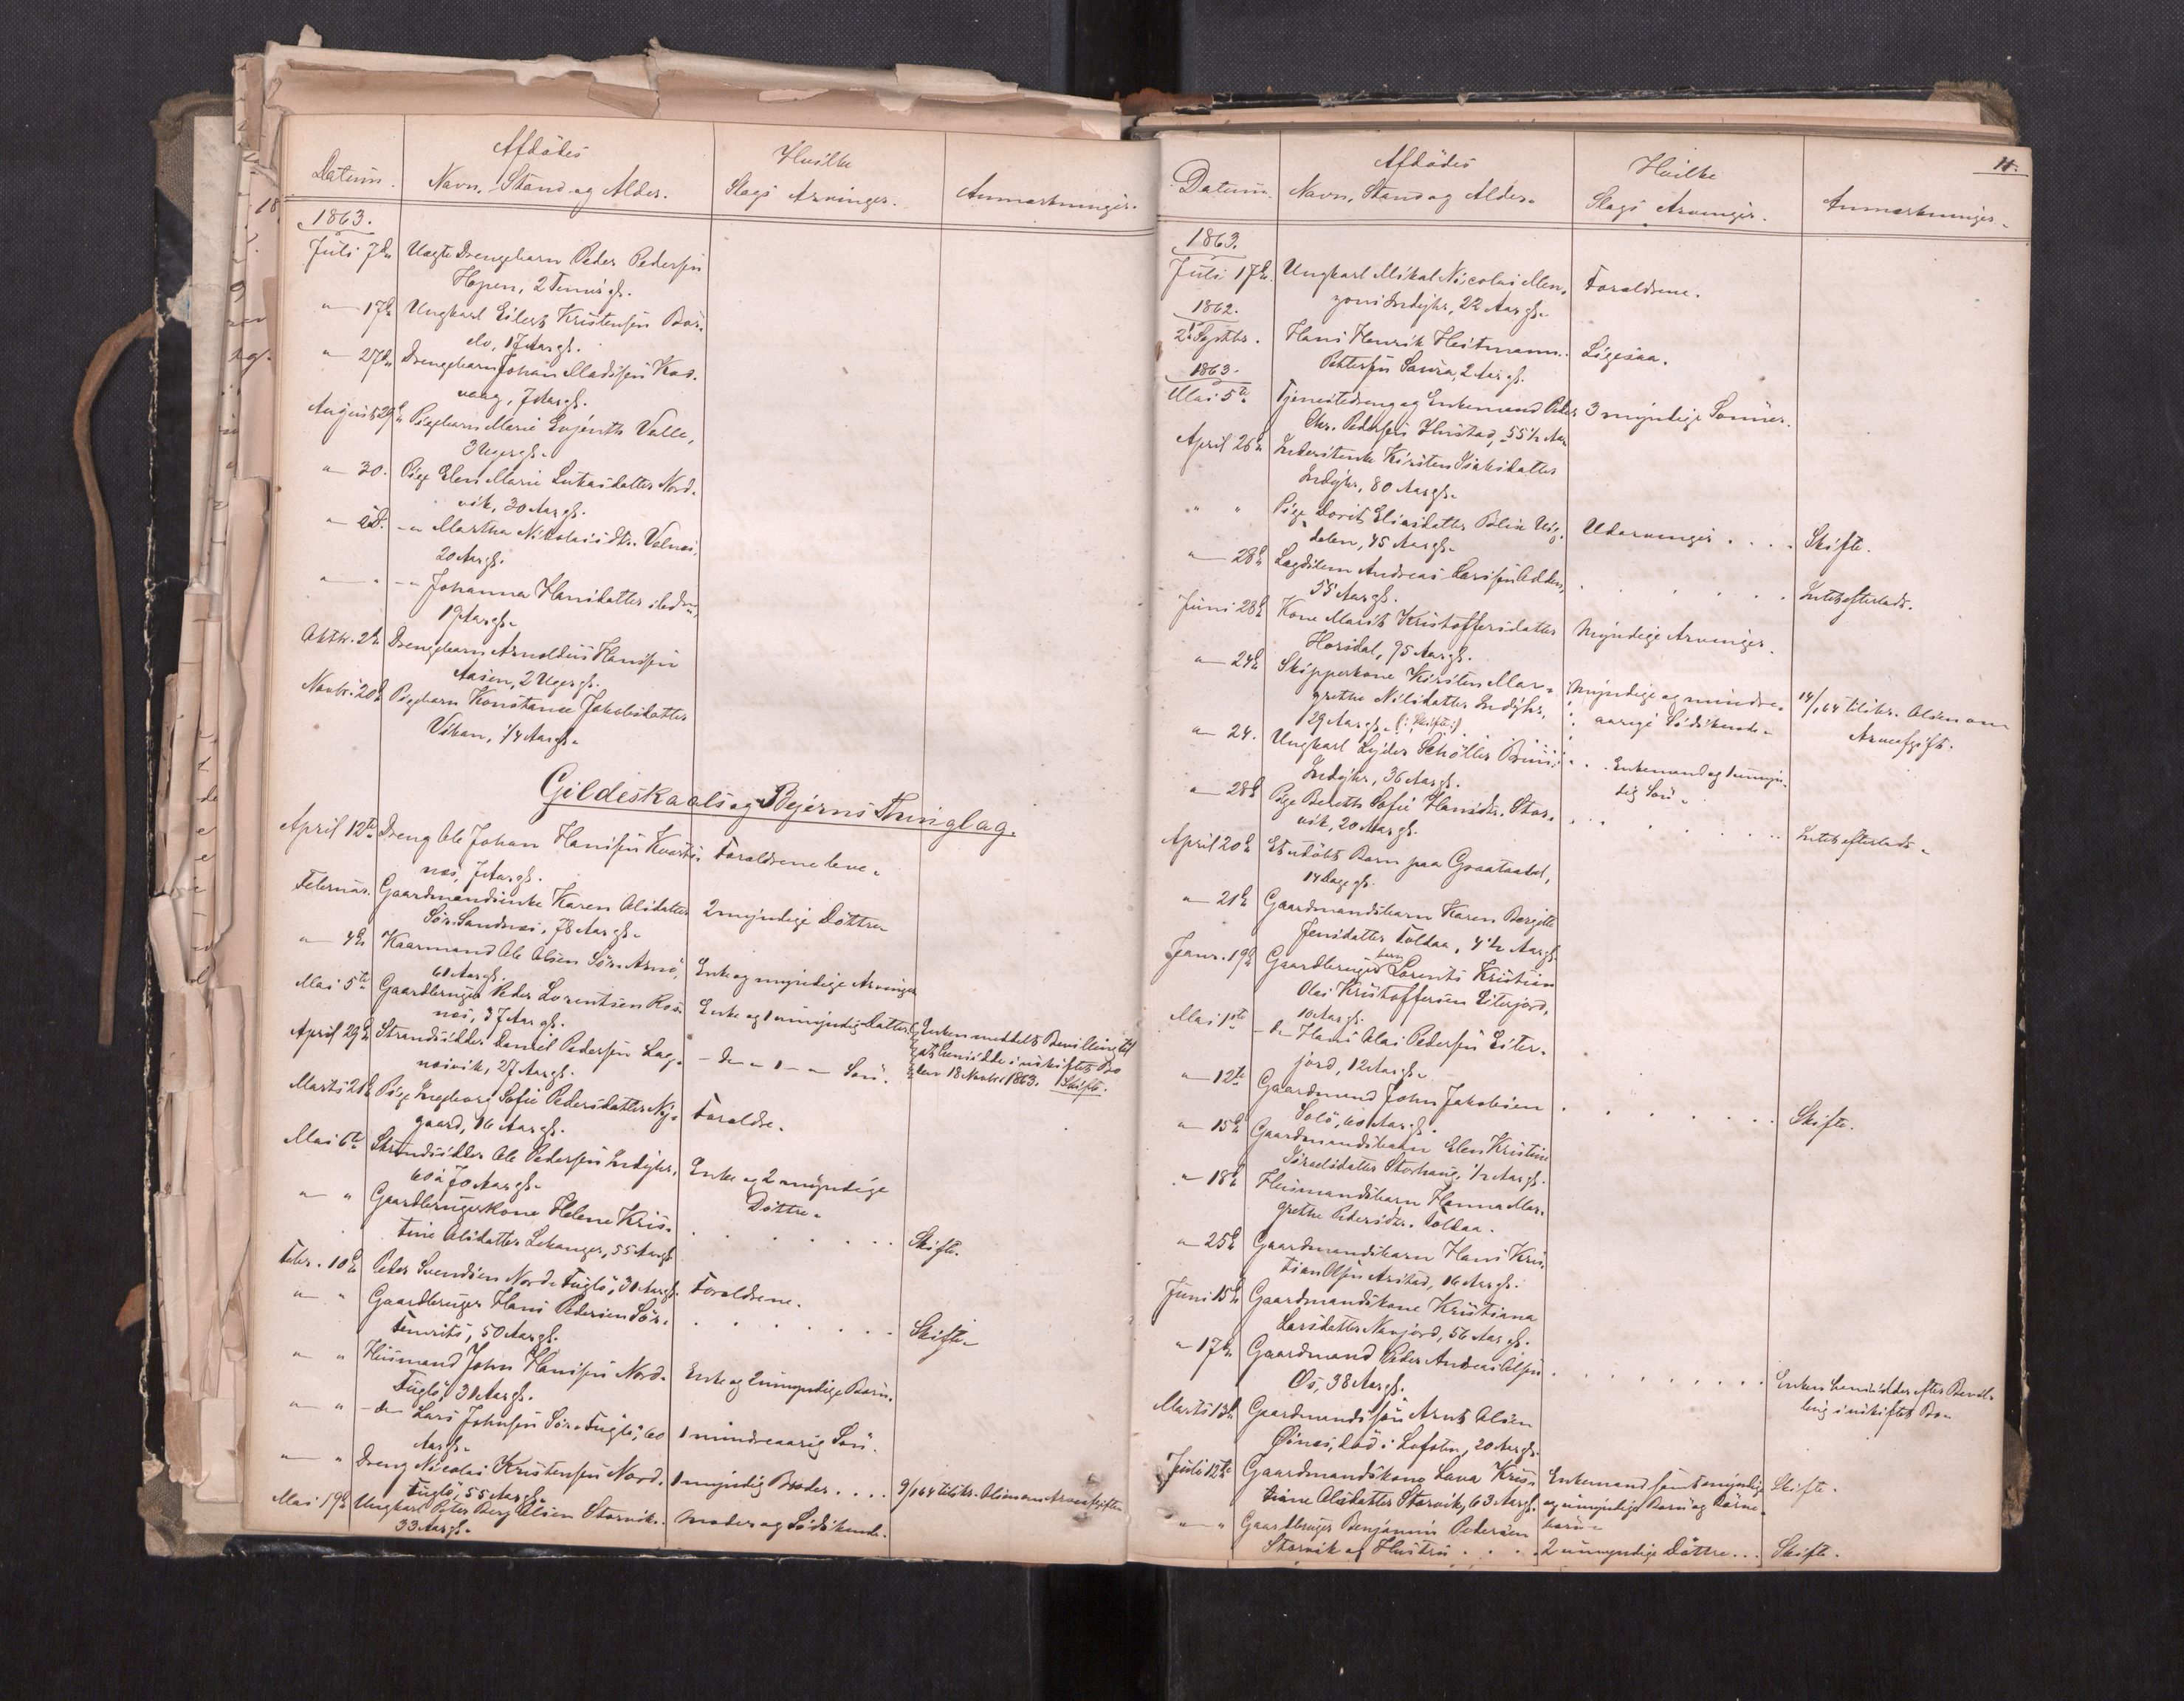 Afdødes
Hvilke
Datum.
Navn, Stand og Alder.
Slags Arvinger.
Anmærkninger.
1863.
Juli 7de Uægte Drengebarn Peder Pedersen
Hopen, 2 Timer gl.
" 17de Ungkarl Eilert Kristensen Bør-
elv, 17 Aar gl.
" 27de Drengebarn Johan Madsen Kod-
vaag, 7 Aar gl.
August 29de Pigebarn Marie Valle,
3 Uger gl.
" 30. Pige Elen Marie Lukasdatter Nord-
vik, 30 Aar gl.
" id. - " Martha Nikolaisdtr. Valnes,
20 Aar gl.
" " - " Johanna Hansdatter
19 Aar gl.
Oktbr. 2de Drengebarn Arnoldus Hansen
Aasen, 2 Uger gl.
Novbr. 20de Pigebarn Konstance Jakobsdatter
Vikan, 1/4 Aar gl.
Gildeskaals og Bejerns Thinglag.
April 12te Dreng Ole Johan Hansen Kvarts-
næs, 7 Aar gl.
Forældrene leve.
Februar. Gaardmandsenke Karen Olsdatter
Sør. Sandnæs, 78 Aar gl.
2 myndige Døttre
" 4de Kaarmand Ole Olsen Sør. Arnø,
61 Aar gl.
Enke og myndige Arvinger
Mai 5te Gaardbruger Peder Lorentsen Ros-
næs, 37 Aar gl.
Enke og 1 umyndig Datter
Enken meddelt Bevilling til
at hensidde i uskiftet Bo
18 Novbr 1863. Skifte.
April 29de Strandsidder Daniel Pedersen Lag-
nesvik, 27 Aar gl.
- do " 1 - " Søn.
Marts 21de Pige Ingeborg Sofie Pedersdatter Ny-
gaard, 16 Aar gl.
Forældre.
Mai 6te Strandsidder Ole Pedersen Indyhr,
60 à 70 Aar gl.
Enke og 2 myndige
Døttre.
" " Gaardbrugerkone Helene Kris-
tine Olsdatter Lekanger, 55 Aar gl.
Skifte.
Febr. 10de Peder Svendsen Nord. Fuglø, 31 Aar gl.
Forældrene.
" " Gaardbruger Hans Pedersen Sør.
Femrits, 50 Aar gl.
Skifte.
" " Husmand John Hansen Nord.
Fuglø, 31 Aar gl.
Enke og 2 umyndige Børn.
" " - do Lars Johnsen Sør. Fuglø, 60
Aar gl.
1 mindreaarig Søn.
" " Dreng Nicolai Kristensen Nord.
Fuglø, 55 Aar gl.
1 myndig Broder . . . .
9/1 64 tilskr. Olsen om Arveafgiften
Mai 19de Ungkarl Peter Berg Olsen Storvik.
33 Aar gl.
Moder og Sødskende.
11.
Afdødes
Hvilke
Datum.
Navn, Stand og Alder.
Slags Arvinger.
Anmærkninger.
1863.
Juli 17de. Ungkarl Mikal Nicolai Men-
zoni Indyhr, 22 Aar gl.
Forældrene.
1862.
2. Septbr. Hans Henrik Heitmann
Pettersen Saura, 2 Aar gl.
Ligesaa.
1863.
Mai 5te Tjenestedreng og Enkemand Peder
Chr. Pedersen Hustad, 55 1/2 Aar
3 myndige Sønner.
April 26de Inderstenke Kirsten Isaksdatter
Indyhr, 80 Aar gl.
" " Pige Dorit Eliasdatter
dalen, 45 Aar gl.
Udarvinger . . . .
Skifte.
" 28de Lægdslem Andreas Larsen
55 Aar gl.
Intet efterladt.
Juni 28de Kone Marit Kristoffersdatter
Horsdal, 75 Aar gl.
Myndige Arvinger.
" 24de Skipperkone Kirsten Mar-
grethe Nilsdatter Indyhr,
29 Aar gl. (: Skifte :)
Myndige og mindre-
aarige Sødskende.
14/1 64 tilskr. Olsen om
Arveafgift.
" 24. Ungkarl Lyder Schøller Bruun
Indyhr, 36 Aar gl.
Enkemand og 1 umyn-
dig Søn.
" 28de Pige Bereth Sofie Hansdtr. Stor-
vik, 20 Aar gl.
Intet efterladt.
April 20de Et udøbt Barn paa Graataadal,
14 Dage gl.
" 21de Gaardmandsbarn Karen Bergitte
Jensdatter Toldaa, 4 1/2 Aar gl.
Janr. 19de Gaardbruger barn Lorents Kristian
Olai Kristoffersen Eiterjord,
10 Aar gl.
Mai 1ste - do Hans Olai Pedersen Eiter-
jord, 12 Aar gl.
" 12te Gaardmand John Jakobsen
Solø, 60 Aar gl.
Skifte.
" 15de Gaardmandsbarn Elen Kristine
Israelsdatter Storhaug, 1/2 Aar gl.
" 18de Husmandsbarn Hanna Mar-
grethe Pedersdtr. Toldaa.
" 25de Gaardmandsbarn Hans Kris-
tian Olsen Arstad, 16 Aar gl.
Juni 15de Gaardmandskone Kristiana
Larsdatter Navjord, 56 Aar gl.
" 17de Gaardmand Peder Andreas Olsen
Os, 38 Aar gl.
Enken hensidder efter Bevil-
ling i uskiftet Bo.
Marts 13de Gaardmandssøn Arnt Olsen
Osnes, død i Lofoten, 20 Aar gl.
Juli 12te Gaardmandskone Lava Kris-
tiane Olsdatter Storvik, 63 Aar gl.
Enkemand samt myndige
og umyndige Børn og Børne-
børn
Skifte.
" " Gaardbruger Benjamin Pedersen
Storvik og Hustru . . . .
2 umyndige Døttre . . .
Skifte.